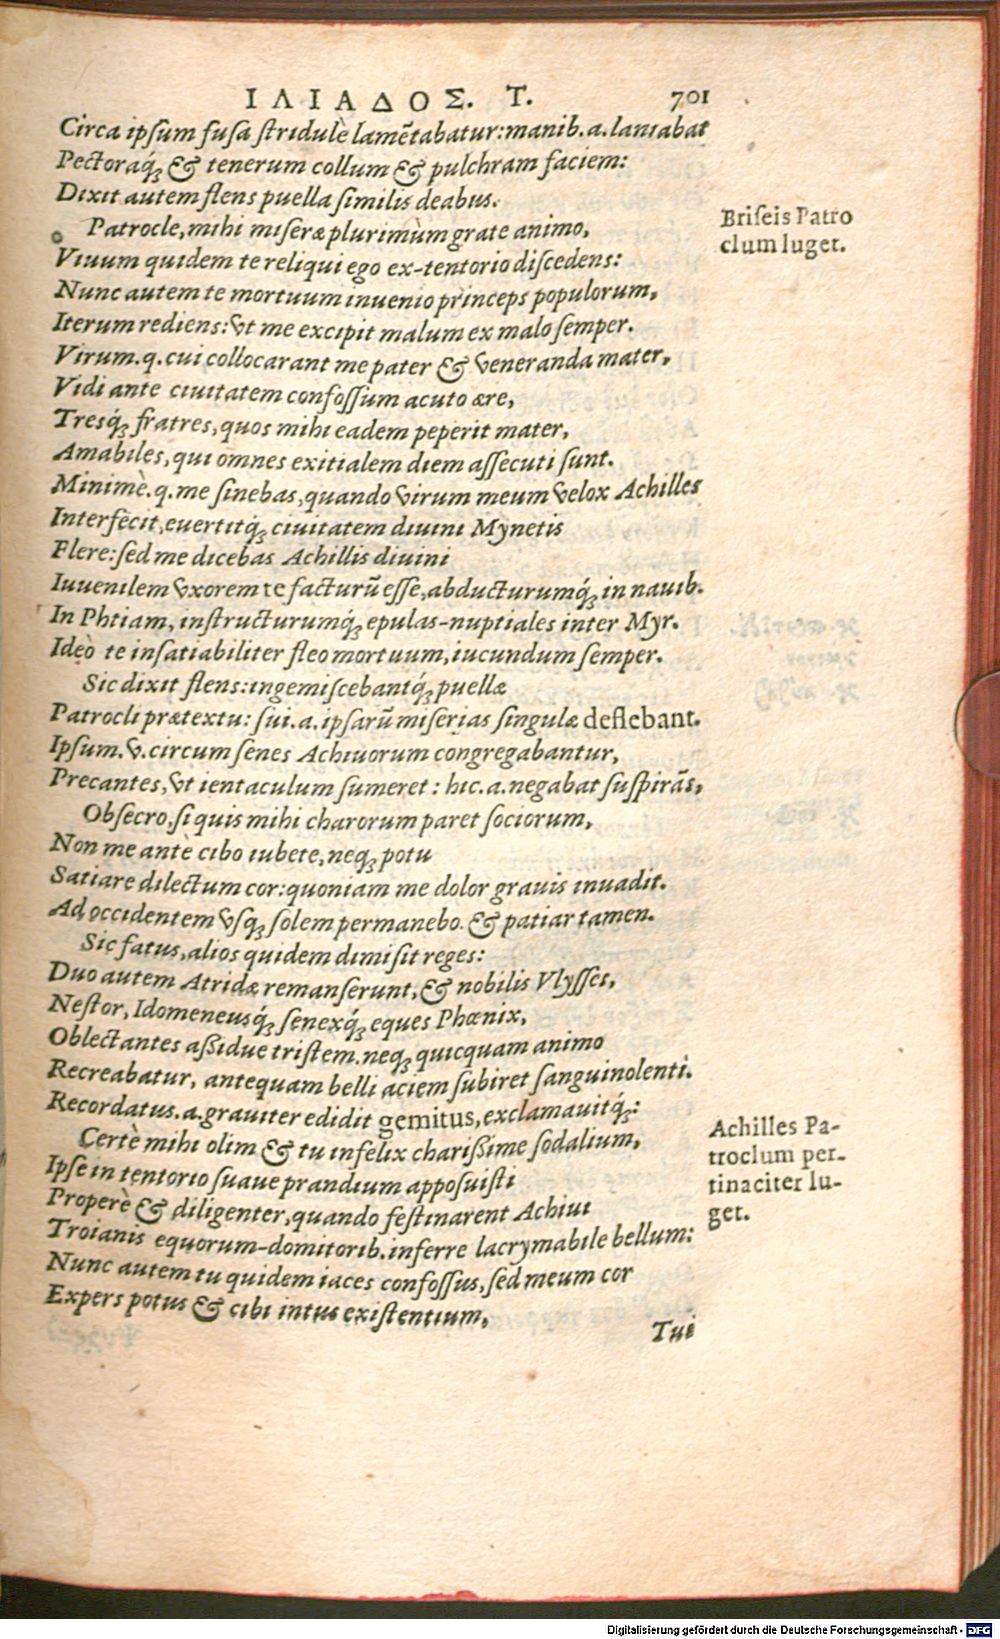 ΙΛΙΑΔΟΣ. Τ. 701
Circa ipſum fuſa ſtridulè lamẽtabatur:manib.a.laniabat
Pectoraq́ꝫ & tenerum collum & pulchram faciem:
Dixit autem flens puella ſimilis deabus.
Briſeis Patro
clum luget.
Patrocle, mihi miſeræ plurimùm grate animo,
Viuum quidem te reliqui ego ex-tentorio diſcedens:
Nunc autem te mortuum inuenio princeps populorum,
Iterum rediens: vt me excipit malum ex malo ſemper.
Virum.q.cui collocarant me pater & veneranda mater,
Vidi ante ciuitatem confoſſum acuto ære,
Tresq́ꝫ fratres, quos mihi eadem peperit mater,
Amabiles, qui omnes exitialem diem aſſecuti ſunt.
Minimè.q.me ſinebas, quando virum meum velox Achilles
Interfecit, euertitq́ꝫ ciuitatem diuini Mynetis
Flere: ſed me dicebas Achillis diuini
Iuuenilem vxorem te facturũ eſſe, abducturumq́ꝫ in nauib.
In Phtiam, inſtructurumq́ꝫ epulas-nuptiales inter Myr.
Ideò te inſatiabiliter fleo mortuum, iucundum ſemper.
Sic dixit flens: ingemiſcebantq́ꝫ puellæ
Patrocli prætextu: ſui.a.ipſarũ miſerias ſingulæ deflebant.
Ipſum.v.circum ſenes Achiuorum congregabantur,
Precantes, vt ientaculum ſumeret: hic.a.negabat ſuſpirãs,
Obſecro, ſi quis mihi charorum paret ſociorum,
Non me antè cibo iubete, neqꝫ potu
Satiare dilectum cor: quoniam me dolor grauis inuadit.
Ad occidentem vſqꝫ ſolem permanebo. & patiar tamen.
Sic fatus, alios quidem dimiſit reges:
Duo autem Atridæ remanſerunt, & nobilis Vlyſſes,
Neſtor, Idomeneusq́ꝫ ſenexq́ꝫ eques Phœnix,
Oblectantes aßidue triſtem. neqꝫ quicquam animo
Recreabatur, antequam belli aciem ſubiret ſanguinolenti.
Recordatus.a.grauiter edidit gemitus, exclamauitq́ꝫ:
Achilles Pa-
troclum per-
tinaciter lu-
get.
Certè mihi olim & tu infelix charißime ſodalium,
Ipſe in tentorio ſuaue prandium appoſuiſti
Properè & diligenter, quando feſtinarent Achiui
Troianis equorum-domitorib. inferre lacrymabile bellum:
Nunc autem tu quidem iaces confoſſus, ſed meum cor
Expers potus & cibi intus exiſtentium,
Tui
Digitalisierung gefördert durch die Deutsche Forschungsgemeinschaft - DFG